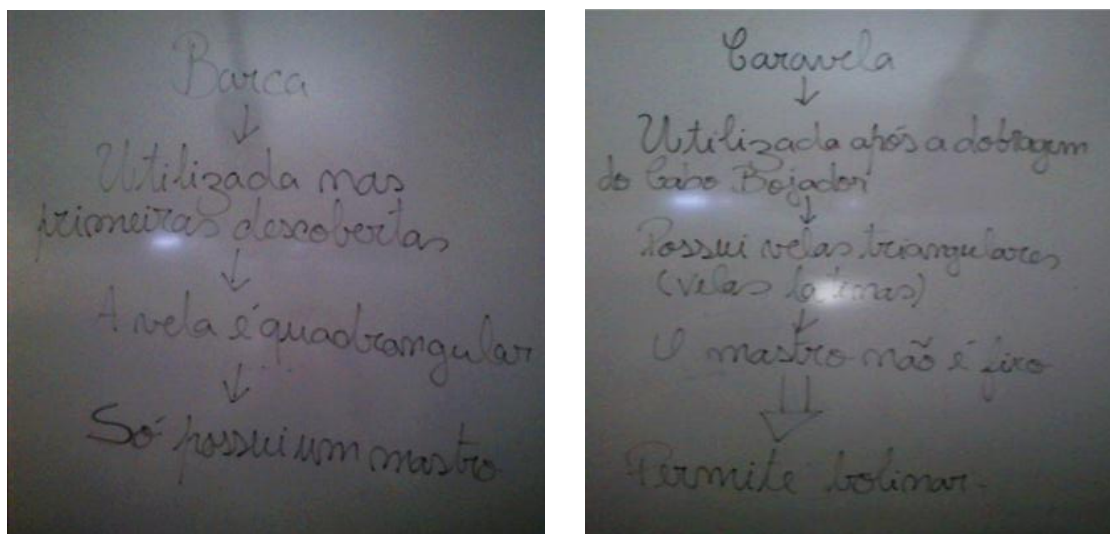 Barca
↓
Utilizada nas
primeiras descobertas
↓
A vela é quadrangular
↓
Só possui um mastro
Caravela
↓
Utilizada após a dobragem
do Cabo Bojador
↓
Possui velas triangulares
(velas latinas)
↓
O mastro não é fixo
⇓
Permite bolinar.